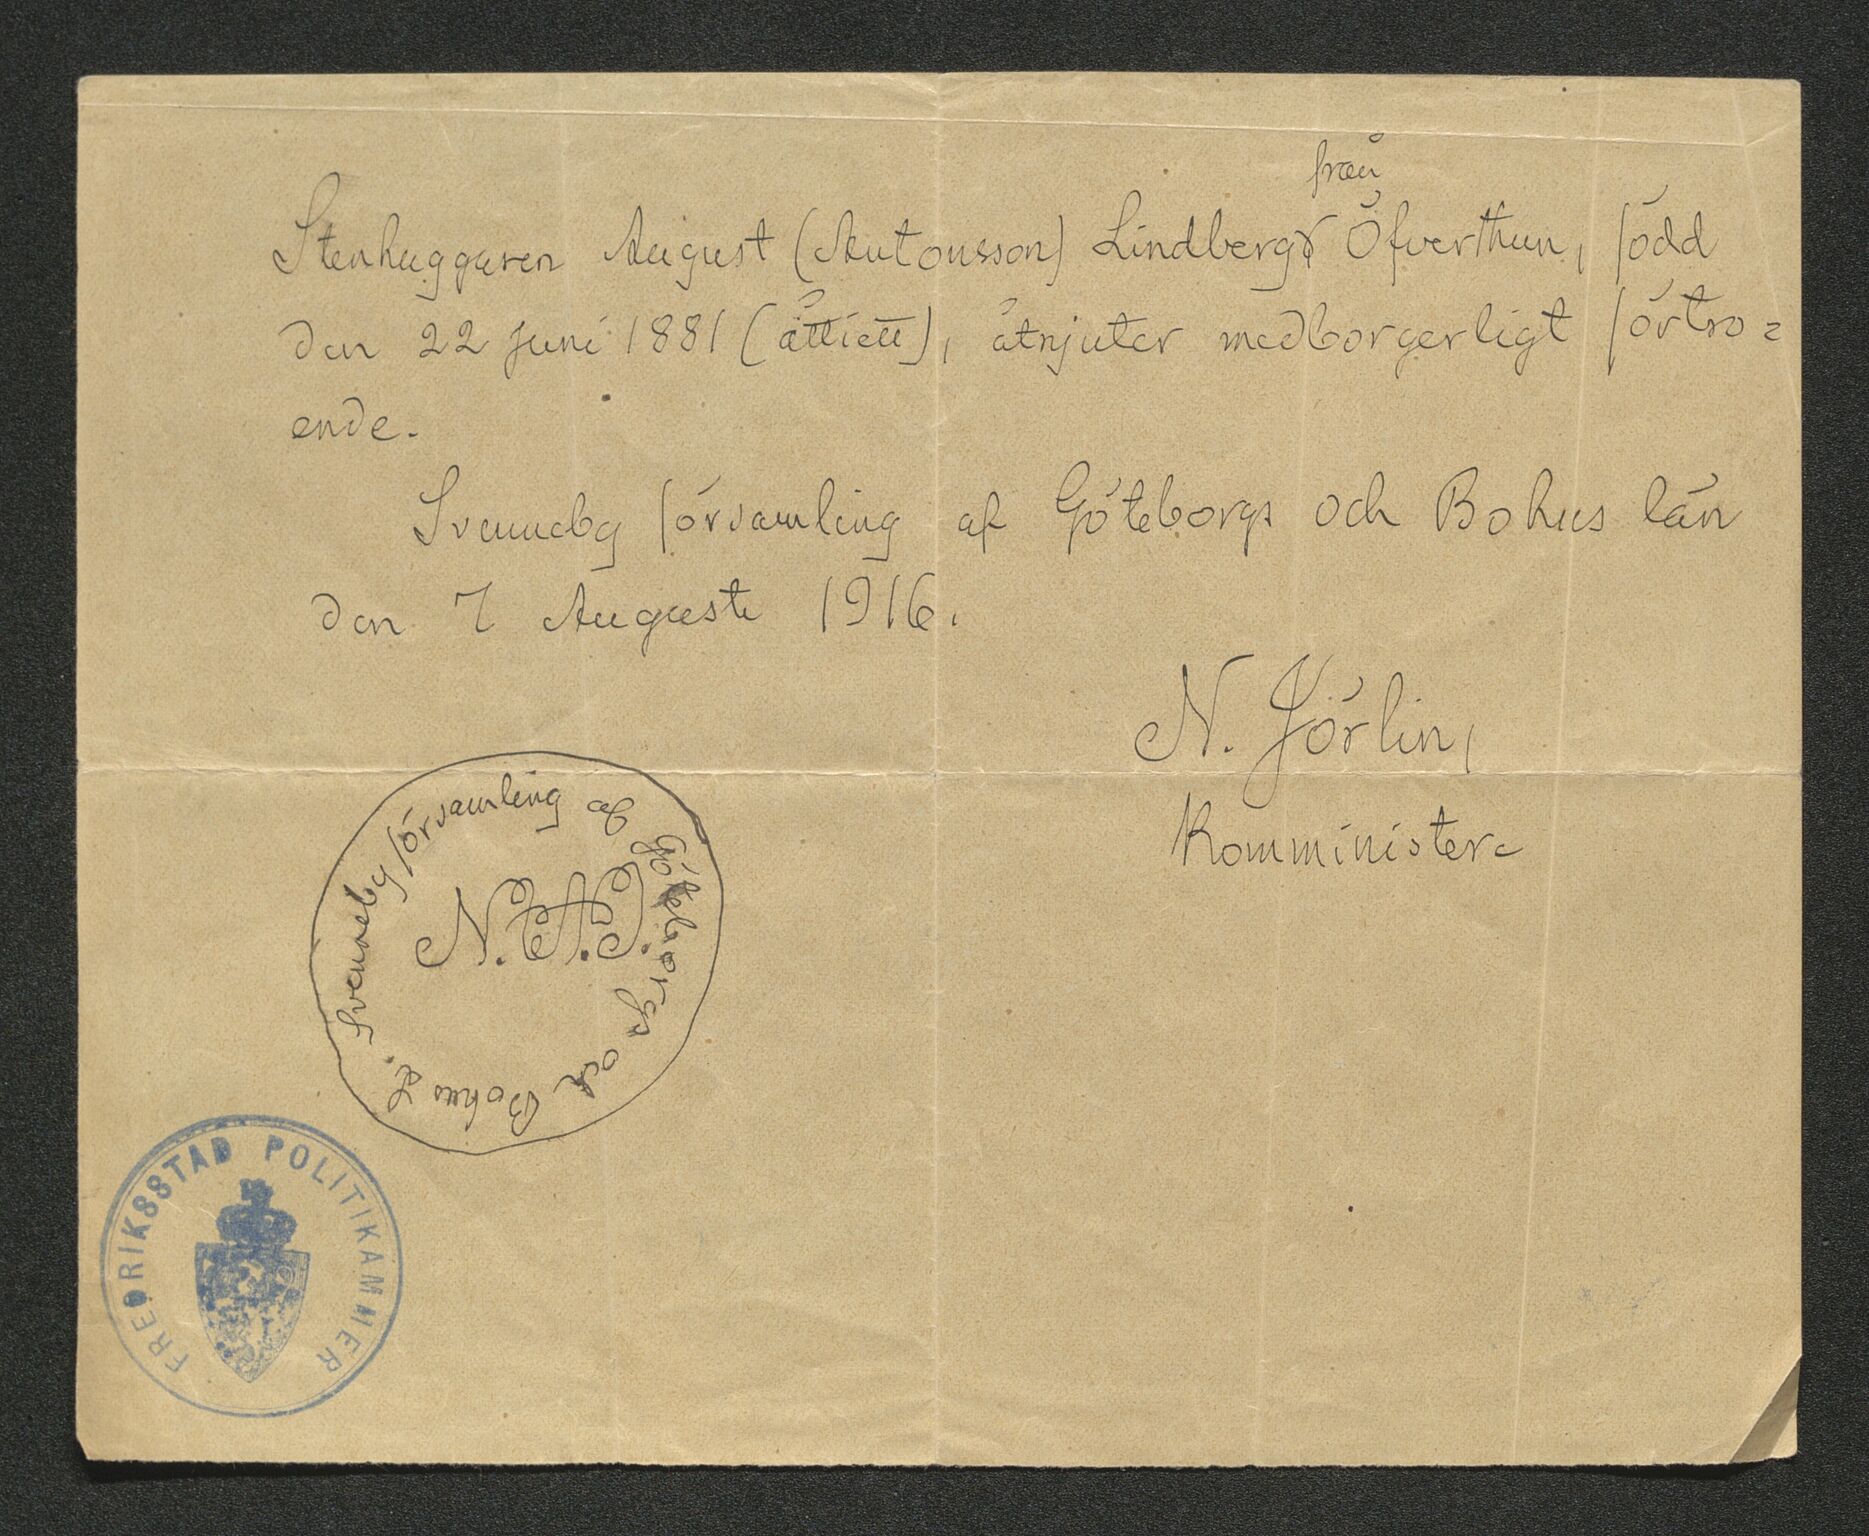 från
Stenhuggaren August (Antonsson) Lindberg Öfverthun, född
den 22 Juni 1881 (åttiett), åtnjuter medborgerligt förtro=
ende.
Svenneby församling af Göteborgs och Bohus län
den 7 Augusti 1916.
N. Jörlin,
Komminister.
Svenneby församling af Göteborgs och Bohus L.
FREDRIKSSTAD POLITIKAMMER